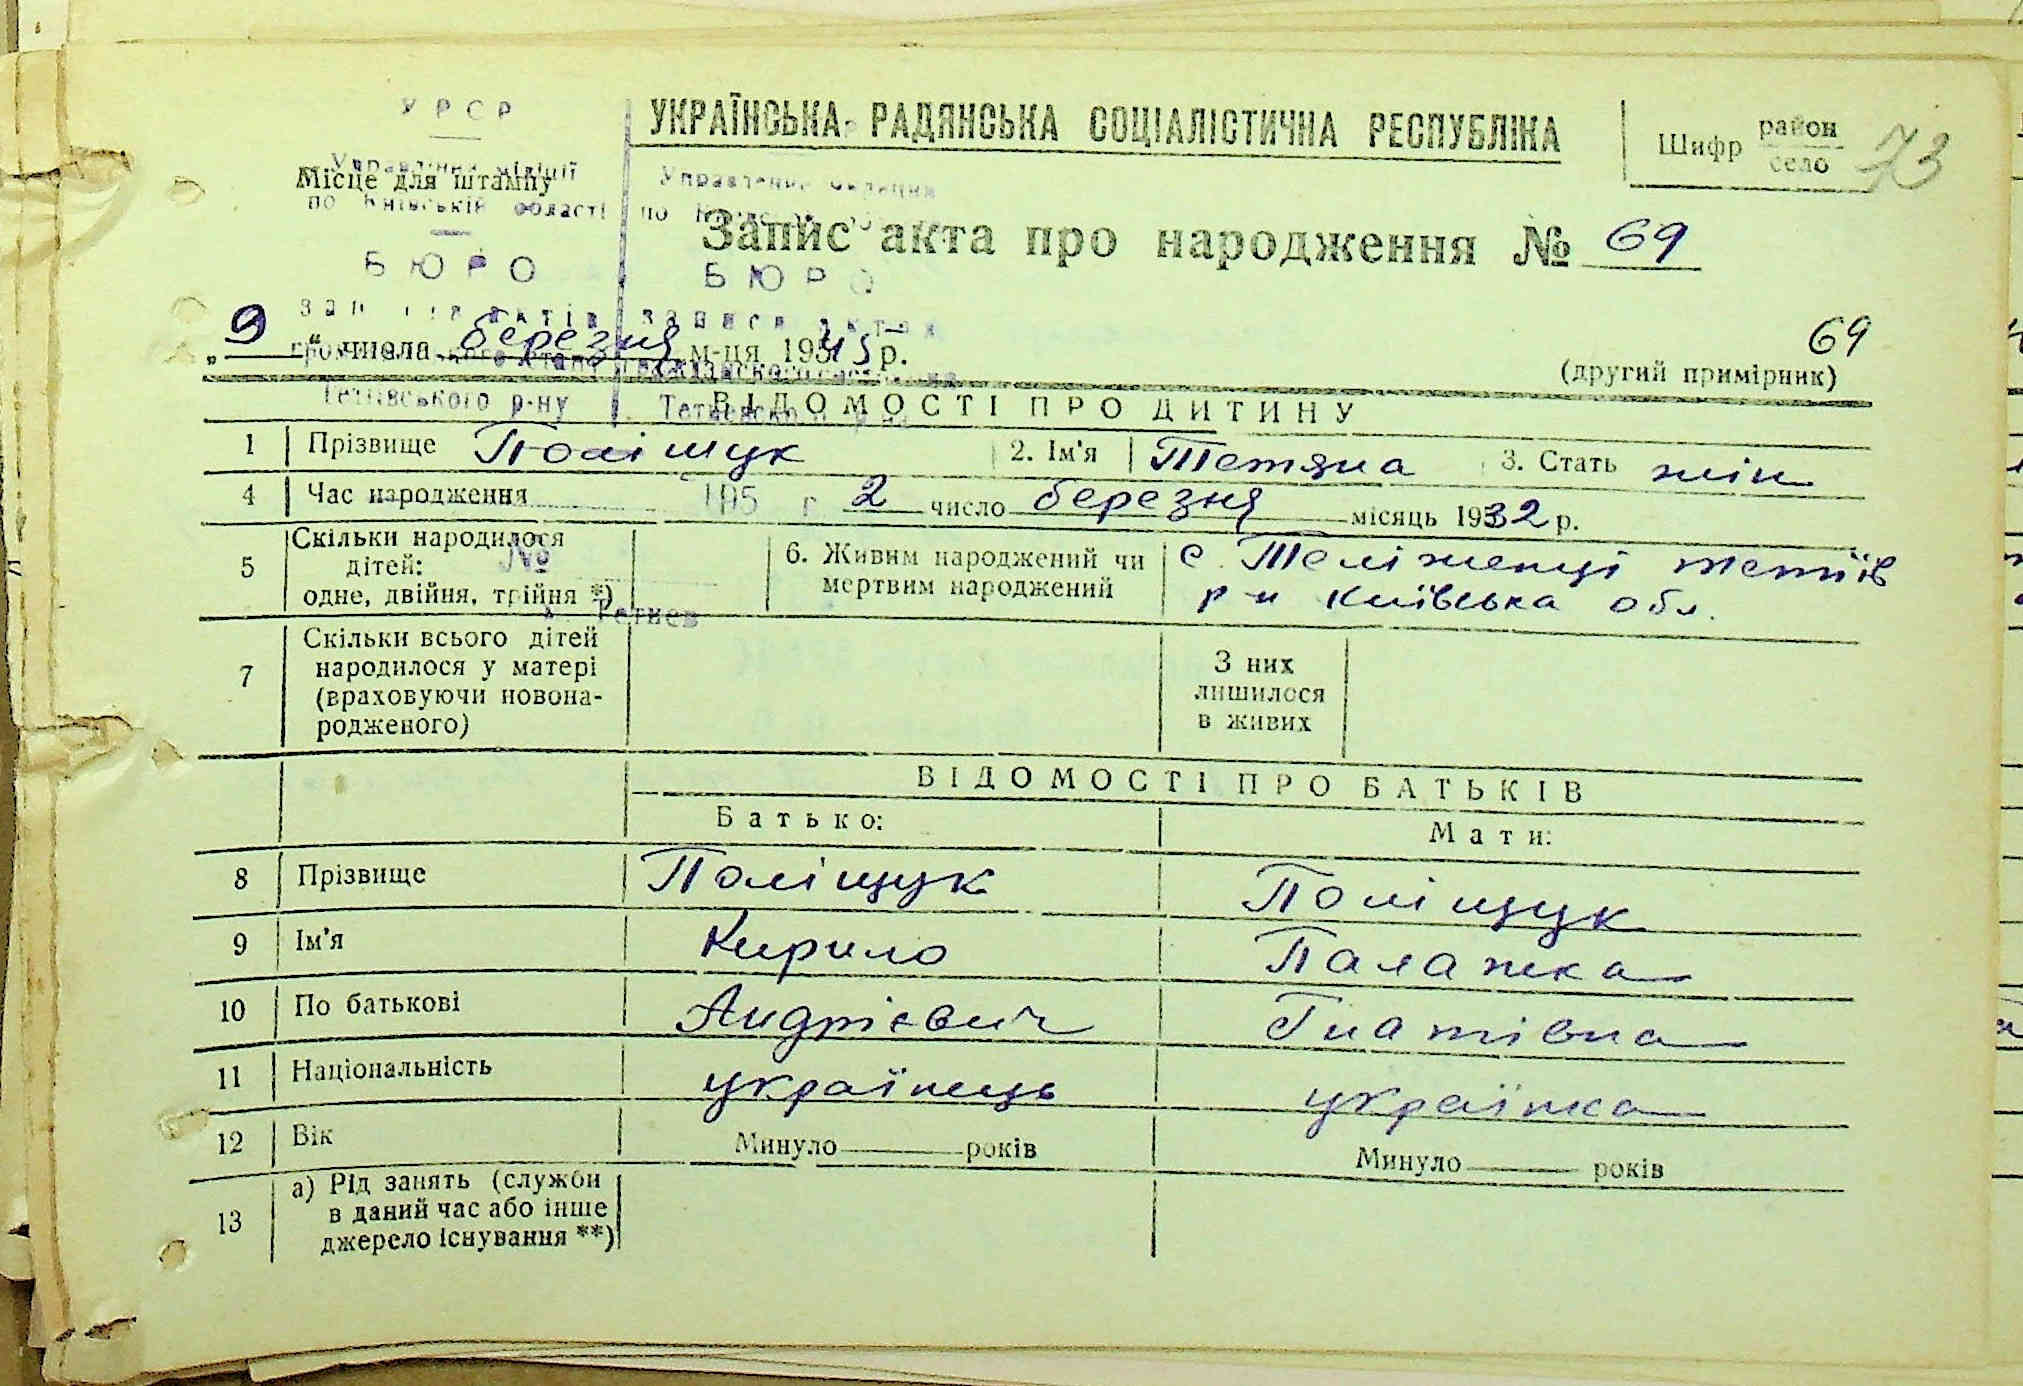 УРСР
УКРАЇНСЬКА РАДЯНСЬКА СОЦІАЛІСТИЧНА РЕСПУБЛІКА
Шифр район село 73
Управління міліції
Місце для штампу
по Київській області
БЮРО
БЮРО
Запис акта про народження № 69
„9“ числа березня м-ця 1945 р.
69
(другий примірник)
Тетіївського р-ну
ВІДОМОСТІ ПРО ДИТИНУ
1 Прізвище Поліщук 2. Ім'я Тетяна 3. Стать жін
4 Час народження 195 г 2 число березня місяць 1932 р.
5 Скільки народилося дітей: одне, двійня, трійня *)
№
6. Живим народжений чи мертвим народжений
с. Теліженці тетіїв
р-н Київська обл.
Тетиев
7 Скільки всього дітей народилося у матері (враховуючи новонародженого)
З них лишилося в живих
ВІДОМОСТІ ПРО БАТЬКІВ
Батько: Мати:
8 Прізвище Поліщук Поліщук
9 Ім'я Кирило Палажка
10 По батькові Андрієвич Гнатівна
11 Національність українець українка
12 Вік Минуло років Минуло років
13 а) Рід занять (служби
в даний час або інше
джерело існування **)